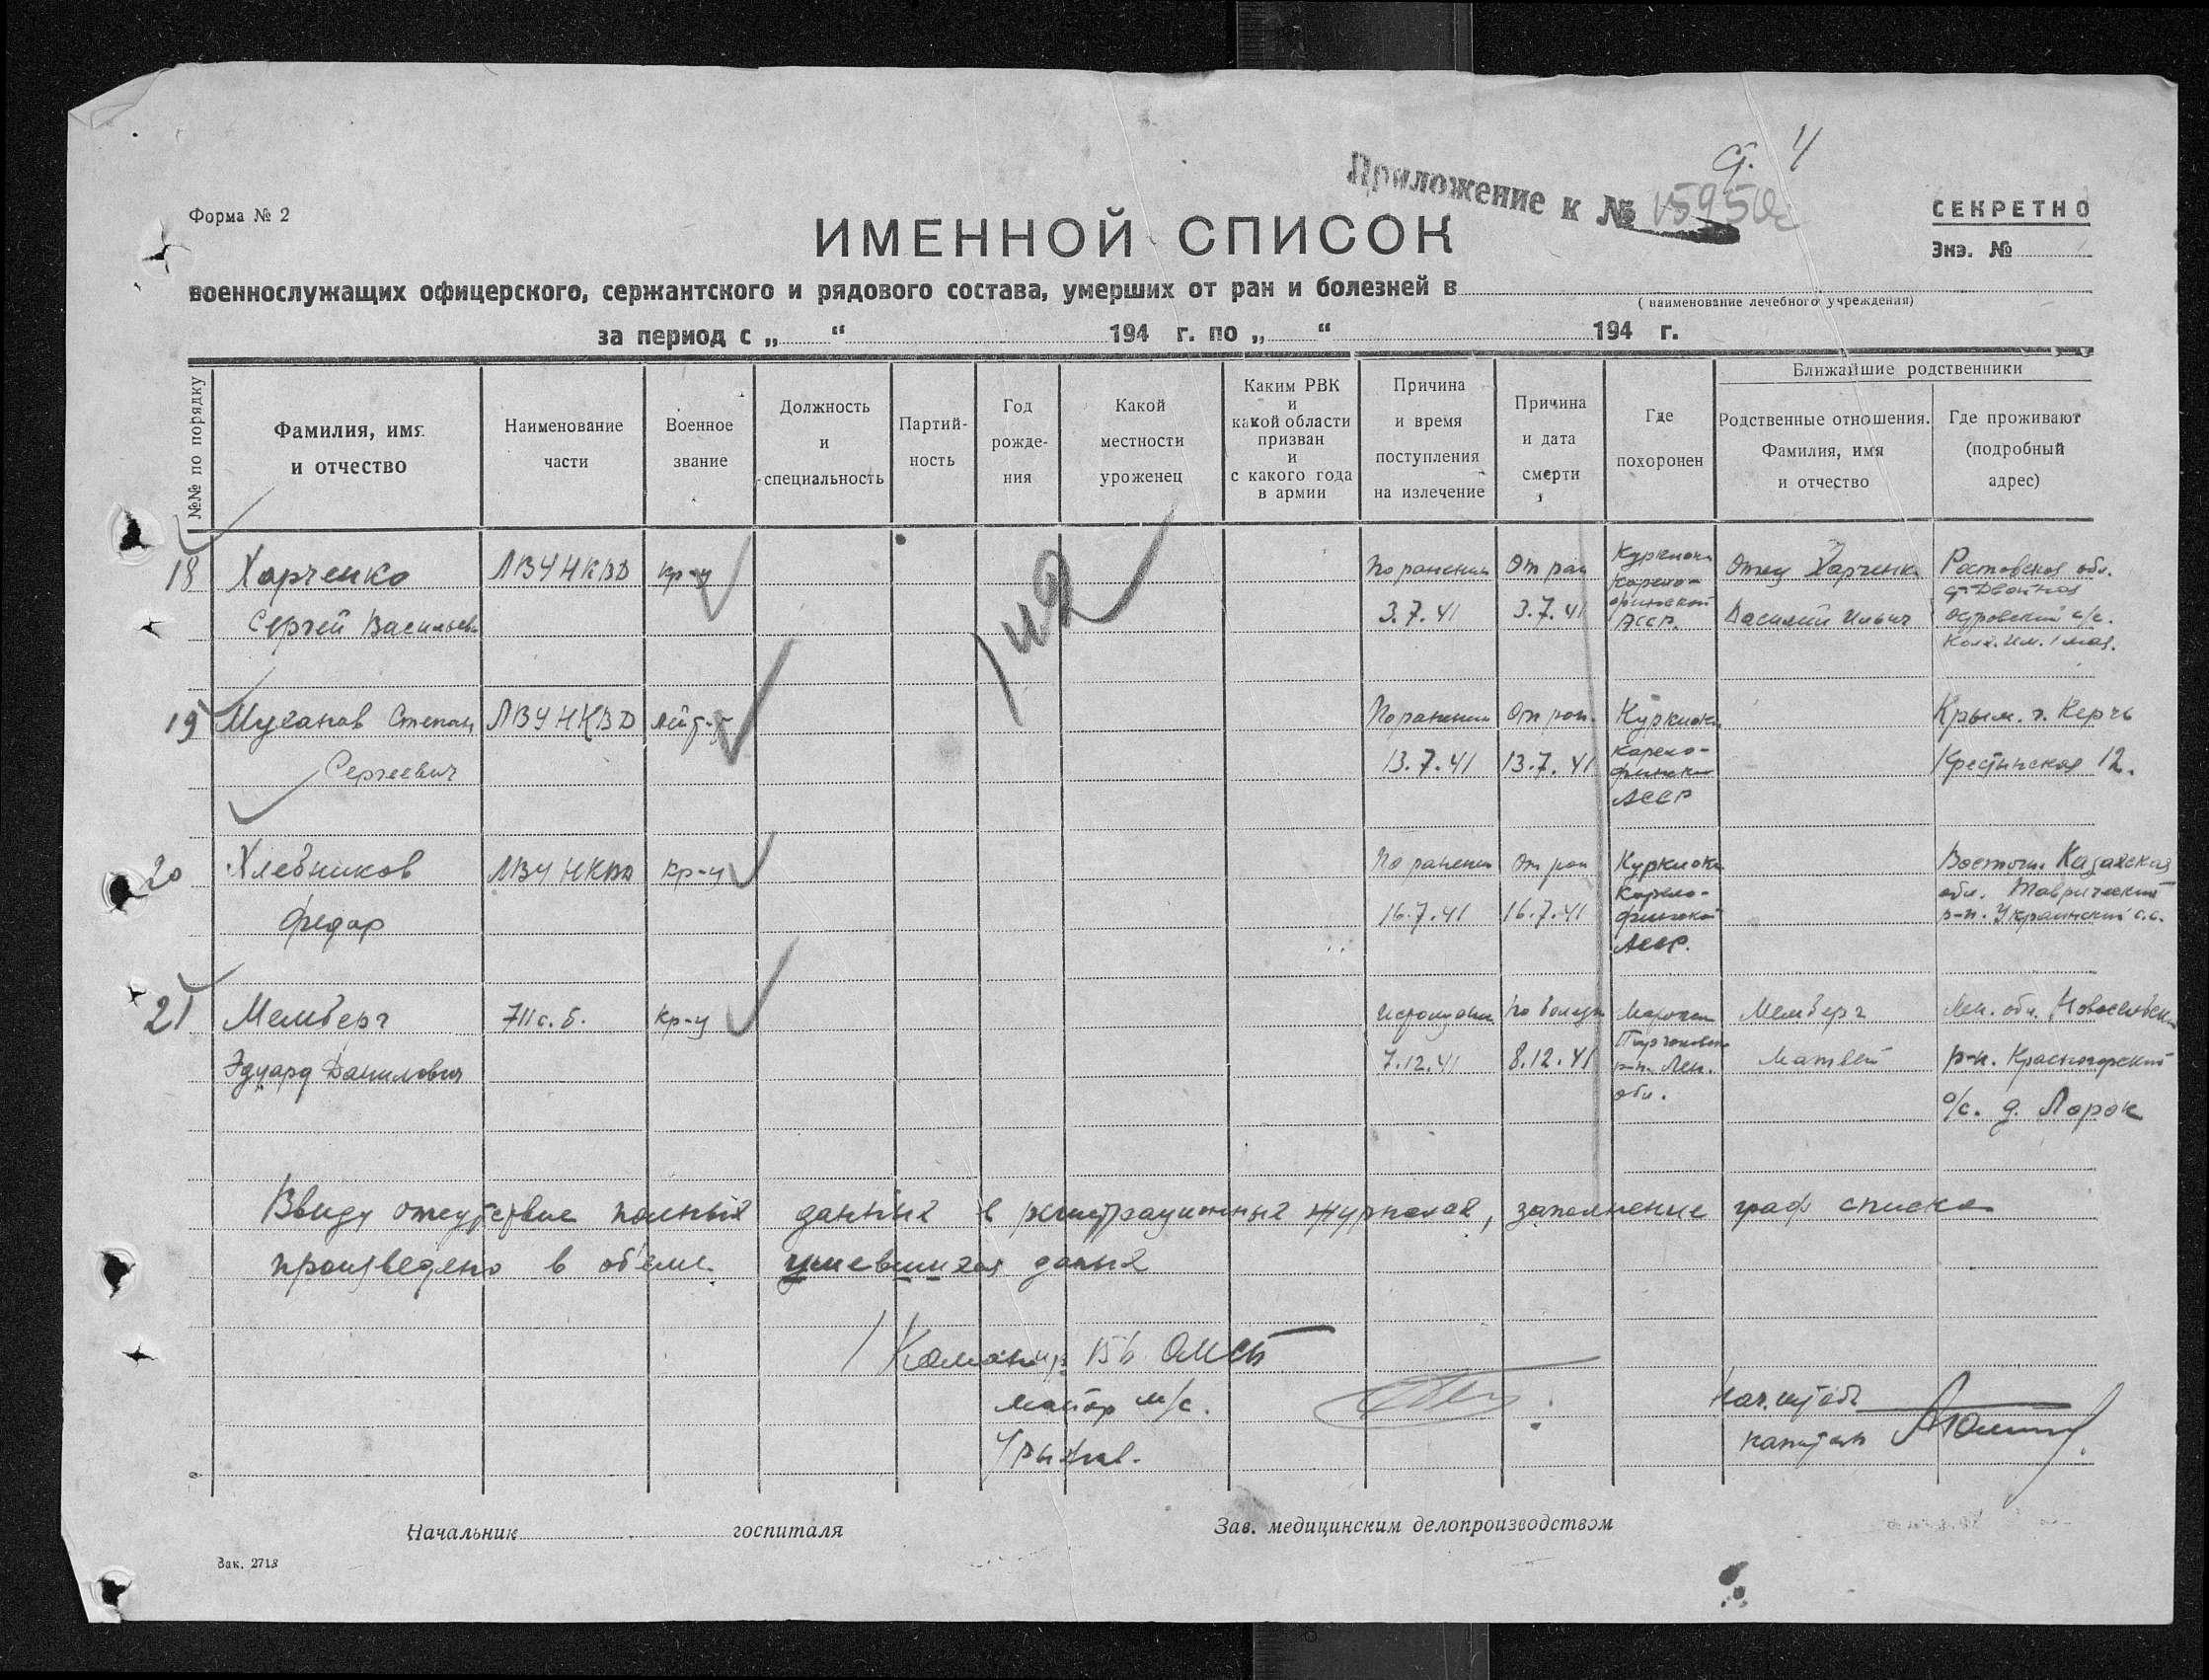 Приложение к №
Форма № 2
СЕКРЕТНО
ИМЕННОЙ СПИСОК
Экз. №
военнослужащих офицерского, сержантского и рядового состава, умерших от ран и болезней в
( наименование лечебного учреждения)
за период с „ “ 194 г. по „ “ 194 г.
№№ по порядку
Фамилия, имя и отчество
Наименование части
Военное звание
Должность и специальность
Партий-ность
Год рожде-ния
Какой местности уроженец
Каким РВК и какой области призван и с какого года в армии
Причина и время поступления на излечение
Причина и дата смерти
Где похоронен
Ближайшие родственники
Родственные отношения. Фамилия, имя и отчество
Где проживают (подробный адрес)
18 Харченко ЛВУ НКВД кр-ц По ранению От ран Куркиоки Отец Харченк Ростовская обл.
Сергей Васильев 3.7.41 3.7.41 карело-финской АССР. Василий Ильич
Островский с/с.
Колх. им. 1 мая.
19 Муханов Степан ЛВУ НКВД По ранению От ран. Куркиоки Крым. г. Керчь
Сергеевич 13.7.41 13.7.41 карело-финской АССР Крестьнская 12.
20 Хлебников ЛВУ НКВД кр-ц По ранению От ран Куркиоки Восточн. Казахская
обл. Таврический
Федор 16.7.41 16.7.41 Карело-финской АССР. р-н. Украинский с.с.
21 Мемберг 711 с.б. кр-ц Мемберг Лен. обл.
Эдуард Данилович 7.12.41 8.12.41 р-н Лен. обл. Матвей р-н. Красногорский
о/с. д. Лорок
Ввиду отсутствие полных данных в регистрационных журналах, заполнение граф списка
произведено в об'еме имевшихся даных
Командир 156 ОМСБ
майор м/с.
Нач. штаба
капитан
Начальник госпиталя
Зав. медицинским делопроизводством
Зак. 2713